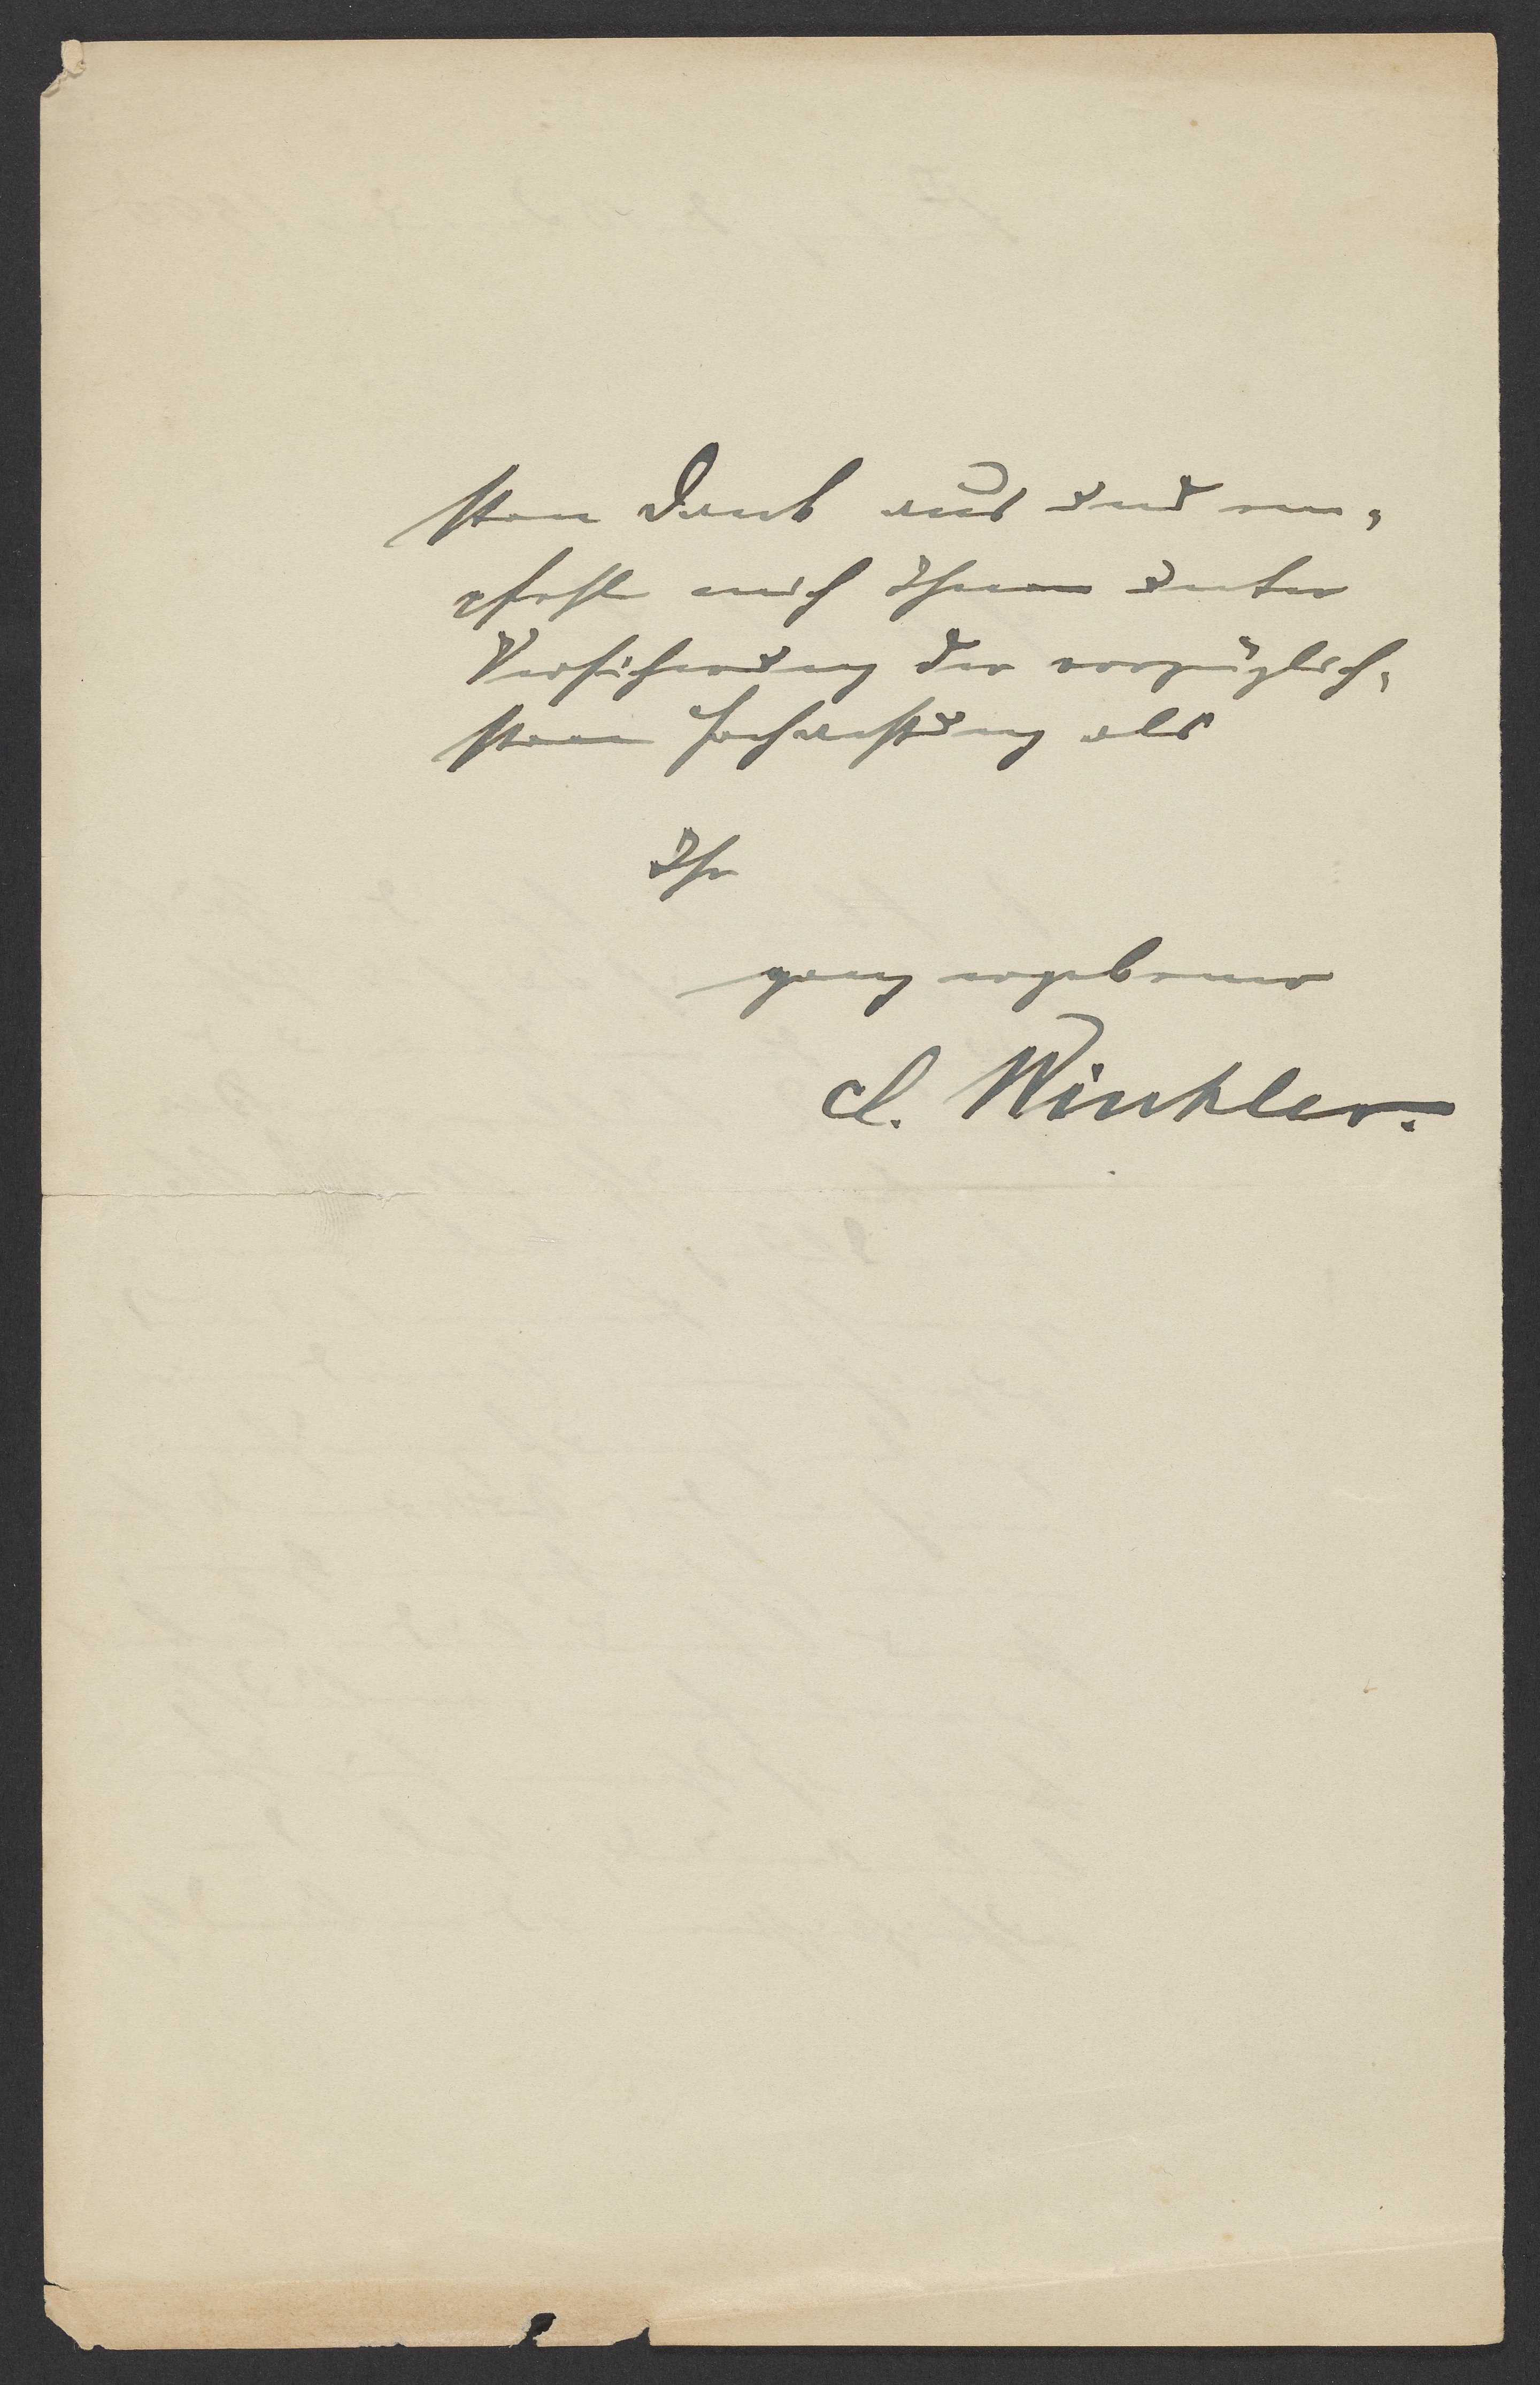 sten Dank aus und em-
pfehle mich Ihnen unter
Versicherung der vorzüglich-
sten Hochachtung als
Ihr
ganz ergebener
Cl. Winkler.